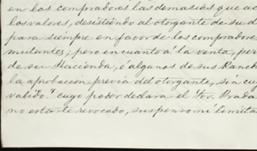 en los compradores las demasias que ac
los valores, desistiendo al otorgante de su d
para siempre en favor de los compradores
mutantes, pero en cuanto á la venta, per
de su Hacienda, é algunos de sus Ranch
la aprobacion previa del otorgante, sin cu
valido." cuyo poder declara el Sor. Prada
no estarle revocado, suspenso ni limita